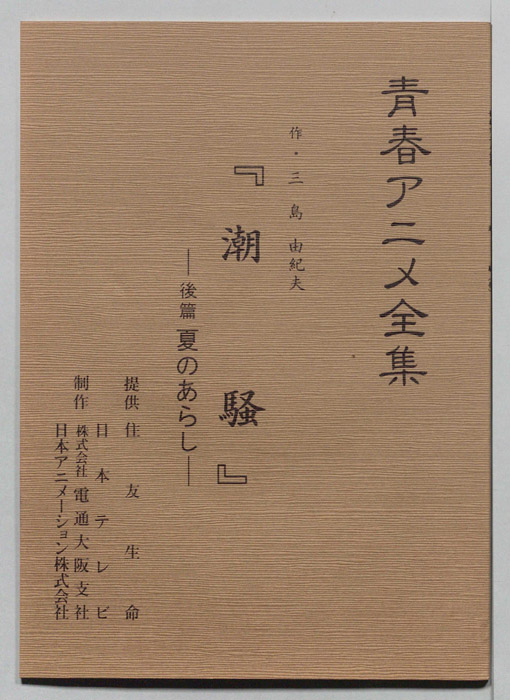 青春アニメ全集
作・三島由紀夫
『潮騒』
―後篇 夏のあらし―
提供 住友生命
日本テレビ
制作 株式会社 電通大阪支社
日本アニメーション株式会社